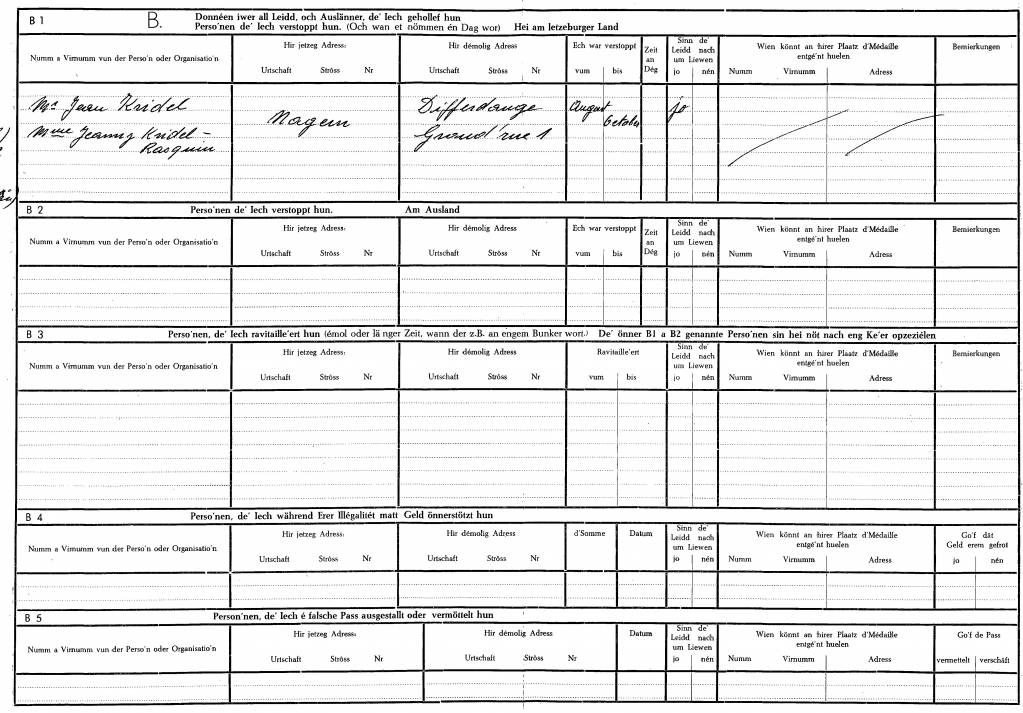 B 1 B. Donnéen iwer all Leidd, och Auslänner, de' Iech gehollef hun
Perso'nen de' Iech verstoppt hun. (Och wan et nömmen én Dag wor) Hei am letzeburger Land
Numm a Virnumm vun der Perso'n oder Organisatio'n
Hir jetzeg Adress:
Urtschaft Ströss Nr
Hir démolig Adress
Urtschaft Ströss Nr
Ech war verstoppt
vum bis
Zeit
an
Dég
Sinn de'
Leidd nach
um Liewen
jo nén
Wien könnt an hirer Plaatz d'Médaille
entgé'nt huelen
Numm Virnumm Adress
Bemierkungen
Mr Jean Kridel
Mme Jeanny Kridel -
Rasquin
Nagem
Differdange
Grand'rue 1
August
October
jo
B 2 Perso'nen de' Iech verstoppt hun. Am Ausland
Numm a Virnumm vun der Perso'n oder Organisatio'n
Hir jetzeg Adress:
Urtschaft Ströss Nr
Hir démolig Adress
Urtschaft Ströss Nr
Ech war verstoppt
vum bis
Zeit
an
Dég
Sinn de'
Leidd nach
um Liewen
jo nén
Wien könnt an hirer Plaatz d'Médaille
entgé'nt huelen
Numm Virnumm Adress
Bemierkungen
B 3 Perso'nen, de' Iech ravitaille'ert hun (émol oder länger Zeit, wann der z.B. an engem Bunker wort.) De' önner B1 a B2 genannte Perso'nen sin hei nöt nach eng Ke'er opzeziélen
Numm a Virnumm vun der Perso'n oder Organisatio'n
Hir jetzeg Adress:
Urtschaft Ströss Nr
Hir démolig Adress
Urtschaft Ströss Nr
Ravitaille'ert
vum bis
Sinn de'
Leidd nach
um Liewen
jo nén
Wien könnt an hirer Plaatz d'Médaille
entgé'nt huelen
Numm Virnumm Adress
Bemierkungen
B 4 Perso'nen, de' Iech während Erer Illégalitét matt Geld önnerstötzt hun
Numm a Virnumm vun der Perso'n oder Organisatio'n
Hir jetzeg Adress:
Urtschaft Ströss Nr
Hir démolig Adress
Urtschaft Ströss Nr
d'Somme
Datum
Sinn de'
Leidd nach
um Liewen
jo nén
Wien könnt an hirer Plaatz d'Médaille
entgé'nt huelen
Numm Virnumm Adress
Go'f dât
Geld erem gefrot
jo nén
B 5 Person'nen, de' Iech é falsche Pass ausgestallt oder vermöttelt hun
Numm a Virnumm vun der Perso'n oder Organisatio'n
Hir jetzeg Adress:
Urtschaft Ströss Nr
Hir démolig Adress
Urtschaft Ströss Nr
Datum
Sinn de'
Leidd nach
um Liewen
jo nén
Wien könnt an hirer Plaatz d'Médaille
entgé'nt huelen
Numm Virnumm Adress
Go'f de Pass
vermettelt verschâft